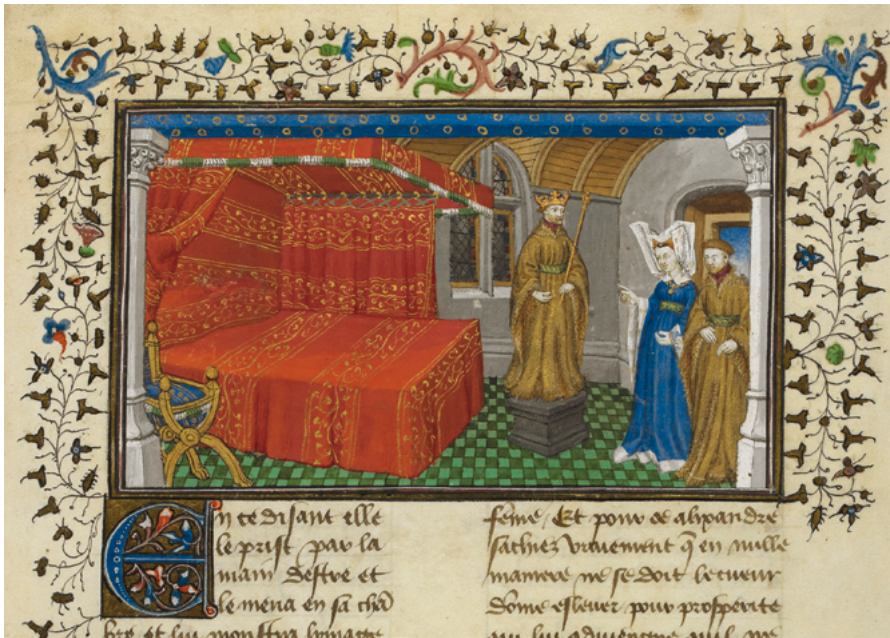 En ce disant elle
le prist par la
main destre et
le mena en sa chã
bre et lui monstra lymaige
feme. Et pour ce alixandre
sachiez vrayement q̃ en nulle
maniere ne se doit le cueur
dõme eslever pour prosperite
qui lui adviengne